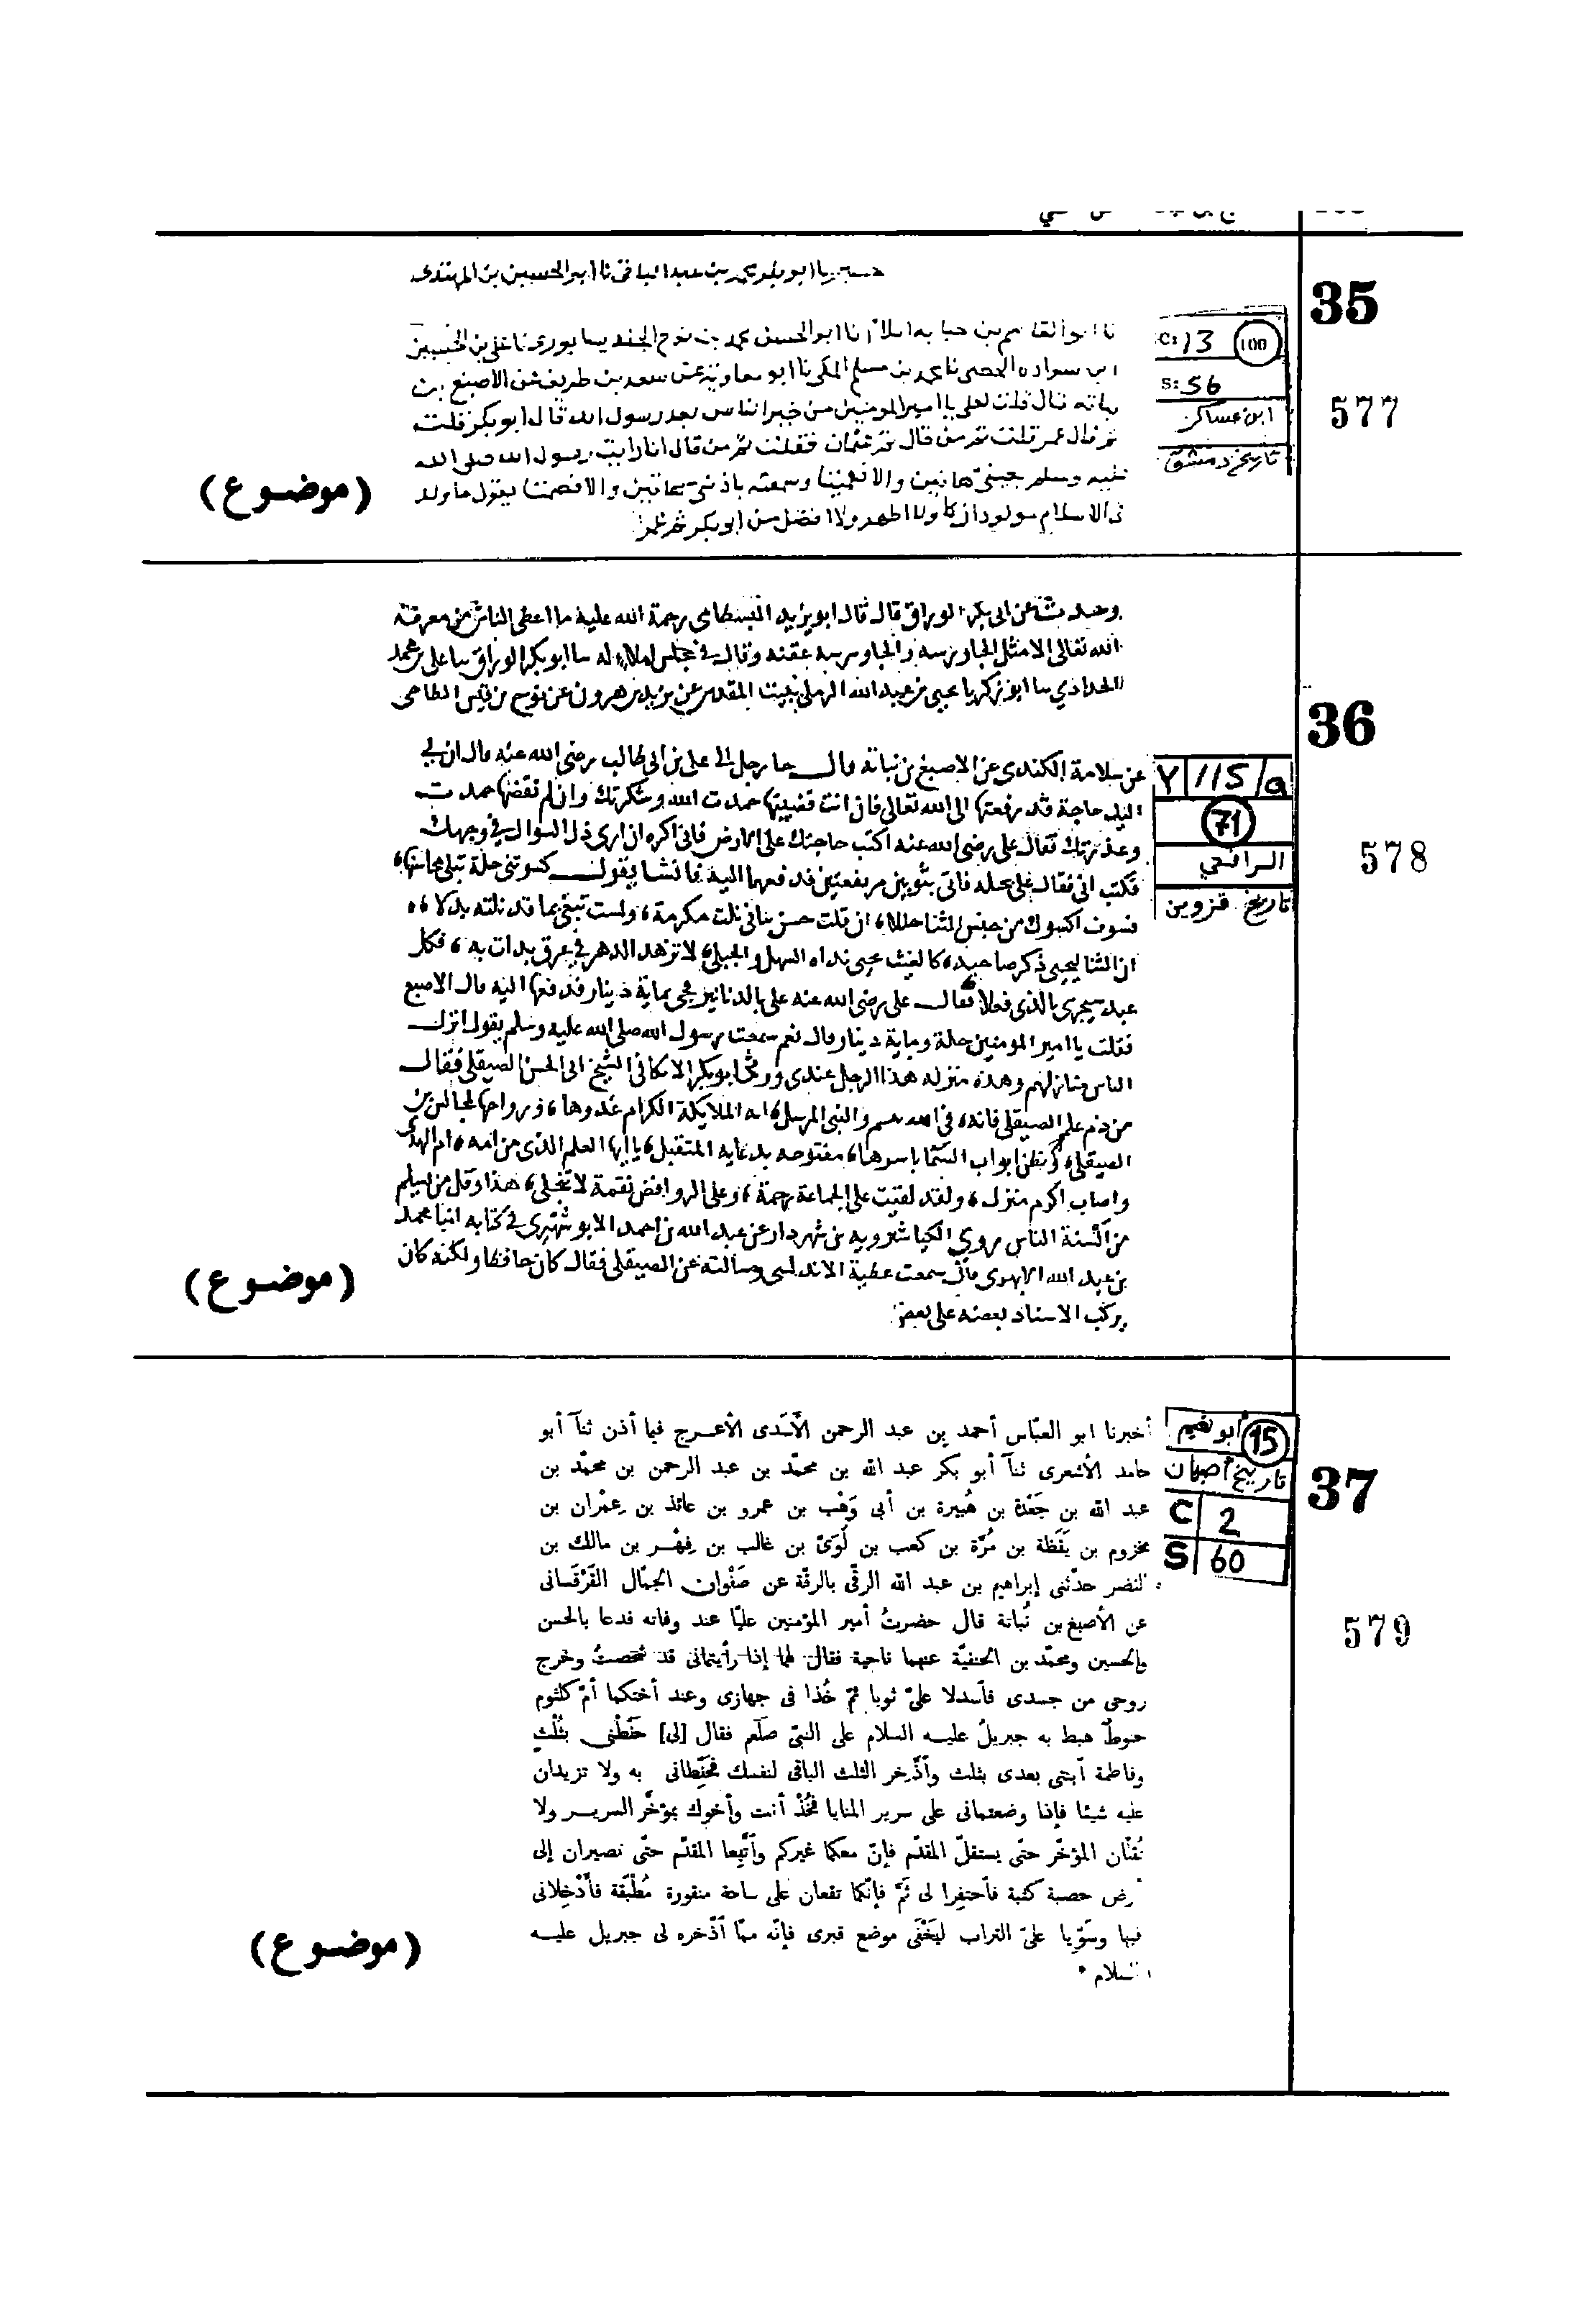 35
C: 13
100
S: 56
ابن عساكر
تاريخ دمشق
577
بن عبد الباقى نا ابو الحسين بن المهتدى
نا ابو القاسم بن حبابه املاء نا ابو الحسن محمد بن نوح الجنديسابورى نا على بن الحسين
ابن سواده الحمصى نا محمد بن مسلم المكى نا ابو معاوية عن سعد بن طريف عن الاصبغ بن
نباته قال قلت لعلى يا امير المومنين من خير الناس بعد رسول الله قال ابو بكر قلت
ثم قال عمر قلت ثم من قال ثم عثمان فقلت ثم من قال انا رايت رسول الله صلى الله
عليه وسلم بعينى هاتين والا فعميتا وسمعته باذنى هاتين والا فصمتا يقول ما ولد
فى الاسلام مولود ازكا ولا اطهر ولا افضل من ابو بكر ثم عمر
(موضوع)
36
Y 115/a
71
الرافعي
تاريخ قزوين
578
وحدث عن ابى بكر الوراق قال قال ابو يزيد البسطامى رحمة الله علية ما اعطى الناس من معرفة
الله تعالى الا مثل وقال فى مجلس املاء له سا ابو بكر الوراق سا على بن محمد
الحدادي سا ابو زكريا يحيى بن عبد الله الرملى ببيت المقدس عن يزيد بن هرون عن نوح بن قيس الطاحى
عن سلامة الكندى عن الاصبغ بن نباتة قال جا رجل الى على بن ابى طالب رضى الله عنه قال ان لي
اليك حاجة قد رفعتها الى الله تعالى فان انت قضيتها حمدت الله وشكرتك وان لم تقضها حمدت
وعذرتك فقال على رضى الله عنه اكتب حاجتك على الارض فانى اكره ان ارى ذل السوال في وجهك
فكتب انى فقال على بحلة فاتى بثوبين مرتفعتين فدفعهما اليه فانشا يقول كسوتنى حلة تبلى محاسنها
فسوف اكسوك من حسن الثنا حللا ان نلت حسن ثنائى نلت مكرمة ولست تبغي بما قد نلته بدلا
ان الثنا ليحيى ذكر صاحبه كالغيث يحيى نداه السهل والجبلا لا تزهد الدهر في عرف بدات به فكل
عبد سيجزى بالذى فعلا فقال على رضى الله عنه على بالدنانير فجى بماية دينار فدفعها اليه قال الاصبغ
فقلت يا امير المومنين حلة وماية دينار قال نعم سمعت رسول الله صلى الله عليه وسلم يقول انزلـ
الناس منازلهم وهذه منزلة هذا الرجل عندى ابو بكر الشيخ ابى الحسن الصيقلى فقال
من ذم علم الصيقلى فانه والنبى المرسل الملايكة الكرام غدوها ورواحها لمجالس بن
الصيقلى ابواب السما باسرها مفتوحه بدعايه المتقبل يا ايها العلم الذى من امه ام الهدى
واصاب اكرم منزل ولقد لقيت على الجماعة رحمة وعلى الروافض نقمة لا تنجلى هذا وقل من يسلم
من السنة الناس روي الكيا شيرويه بن شهردار عن عبد الله بن احمد في كتابه انبا محمد
بن عبد الله قال سمعت عطية الاندلسى وسالته عن الصيقلى فقال كان حافظا ولكنه كان
يركب الاسناد بعضه على بعض
(موضوع)
37
أبو نعيم
15
تاريخ أصبهان
C 2
S 60
579
أخبرنا ابو العبّاس أحمد بن عبد الرحمن الأسَدى الأعرج فيما أذن ثنآ أبو
حامد الأشعرى ثنآ أبو بكر عبد الله بن محمّد بن عبد الرحمن بن محمّد بن
عبد الله بن جَعْدَة بن هُبيرة بن أبى وَهْب بن عمرو بن عائذ بن عِمْران بن
مخزوم بن يَقَظة بن مُرّة بن كعب بن لُوَىّ بن غالب بن فِهْر بن مالك بن
النضر حدّثنى إبراهيم بن عبد الله الرقّى بالرقّة عن صَفْوان الجمّال القَرْقَسانى
عن الأصبغ بن نُباتة قال حضرتُ أمير المؤمنين عليّا عند وفاته فدعا بالحسن
والحسين ومحمّد بن الحنفيّة عنهما ناحية فقال لهما إذا رأيتمانى قد شخصتُ وخرج
روحى من جسدى فأسدلا علىّ ثوبا ثمّ خُذا فى جهازى وعند أختكما أمّ كلثوم
حنوطٌ هبط به جبريلُ عليه السلام على النبىّ صلّعم فقال [لى] حَنّطْنى بثُلْثٍ
وفاطمة أبنتى بعدى بثلث وأدّخر الثلث الباقى لنفسك فحنِّطانى به ولا تزيدان
عليه شيئا فإذا وضعتمانى على سرير المنايا فخُذْ أنت وأخوك بمؤخّر السرير ولا
تُقلّان المؤخّر حتّى يستقلّ المقدّم فإنّ معكما غيركم وأتّبِعا المقدّم حتّى تصيران إلى
أرض حصبة كثبة فأحتفِرا لى ثَمّ فإنّكما تقعان على ساجة منقورة مُطْبَقة فأَدْخِلانى
فيها وسَوِّيا علىّ التراب ليَخْفَى موضع قبرى فإنّه ممّا ٱدّخره لى جبريل عليه
السلام *
(موضوع)